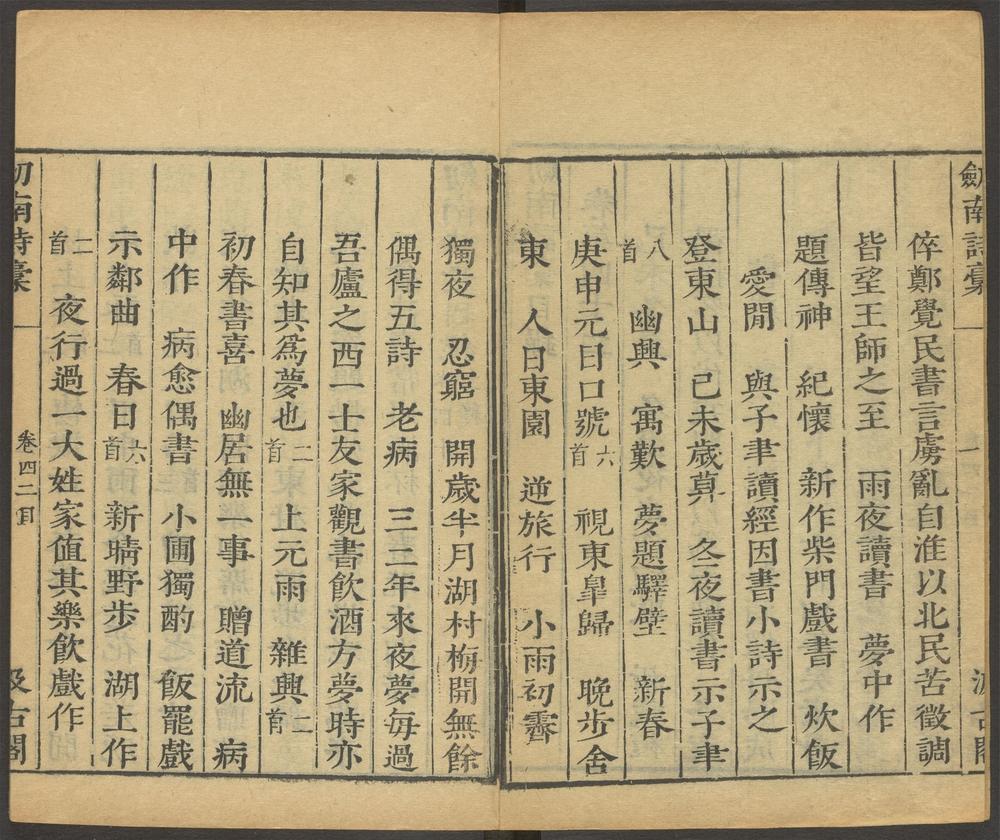 劒南詩稾
汲古閣
倅鄭覺民書言虜亂自淮以北民苦徵調
皆望王師之至 雨夜讀書 夢中作
題傳神 紀懷 新作柴門戲書 炊飯
愛閒 與子聿讀經因書小詩示之
登東山 己未歲莫 冬夜讀書示子聿
八首 幽興 寓歎 夢題驛壁 新春
庚申元日口號六首 視東皐歸 晚步舍
東 人日東園 逆旅行 小雨初霽
獨夜 忍窮 開歲半月湖村梅開無餘
偶得五詩 老病 三三年來夜夢每過
吾廬之西一士友家觀書飲酒方夢時亦
自知其爲夢也二首 上元雨 雜興二首
初春書喜 幽居無一事 贈道流 病
中作 病愈偶書 小圃獨酌 飯罷戲
示鄰曲 春日六首 新晴野步 湖上作
二首 夜行過一大姓家値其樂飲戲作
劒南詩稾
卷四二目
汲古閣